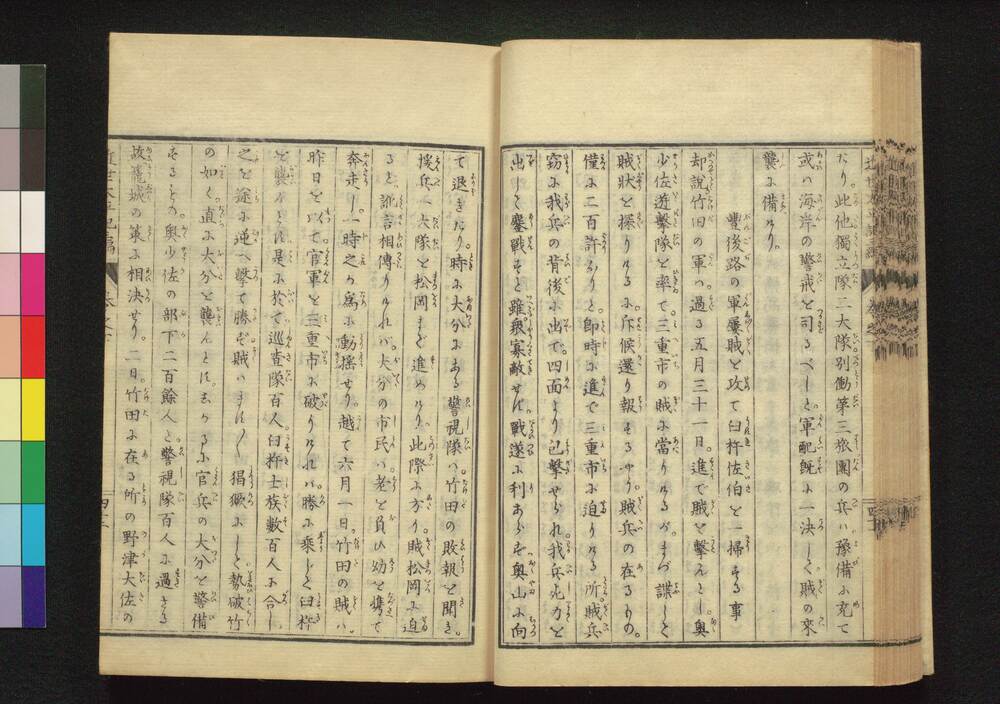 たり。此他獨立隊二大隊別働第三旅團の兵ハ豫備ふ充て
或ハ海岸の警戒を司るべしと軍配既ふ一決しく賊の來
襲ふ備けり。
豐後路の軍屢賊を攻て臼杵佐伯を一掃する事
却說竹田の軍ハ過る五月三十一日。進で賊を擊んとし奥
少佐遊擊隊を率て三重市の賊ふ當りけるが。まづ諜して
賊狀を探りけるふ斥候還り報ずるやう賊兵の在るもの。
僅ふ二百許なりと即時ふ進で三重市ふ迫りける所。賊兵
窃ふ我兵の背後ふ出で。四面より已擊せられ。我兵死力を
出して鏖戰すと雖衆寡敵せず。戰遂ふ利あらず奥山ふ向
て退きたり。時ふ大分ふある警視隊ハ竹田の敗報を聞き。
援兵一大隊を松岡まで進めけり。此際ふ方り賊松岡ふ迫
ると。訛言相傳りけれバ大分の市民ハ老を負ひ幼を携て
奔走し。一時之が爲ふ動搖せり。越て六月一日竹田の賊ハ。
昨日を以て官軍を三重市ふ破りけれバ。勝ふ乗じて臼杵
を襲んとす。是ふ於て巡査隊百人臼杵士族數百人ふ合し。
之を途ふ逆へ擊て勝ず。賊ハますく猖獗ふして勢破竹
の如く直ふ大分を襲んとす。志かるふ官兵の大分を警備
するもの。奥少佐の部下二百餘人と警視隊百人ふ過ざる
故。籠城の策ふ相決せり。二日竹田ふ在る所の野津大佐の